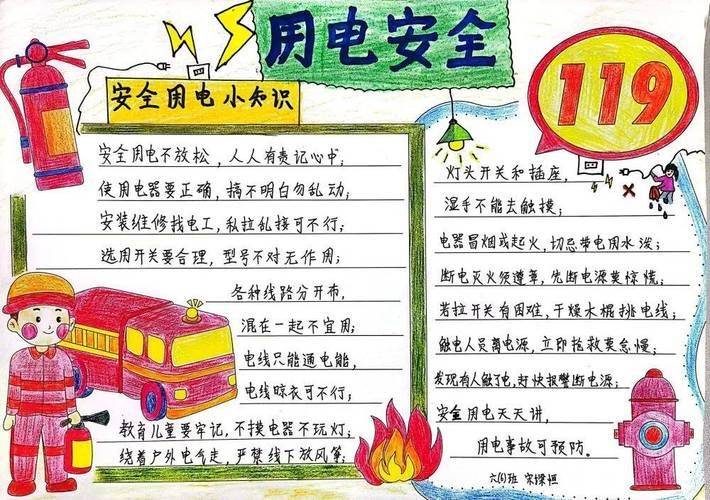 用电安全
119
安全用电小知识
安全用电不放松，人人有责记心中；
使用电器要正确，搞不明白勿乱动；
安装维修找电工，私拉乱接可不行；
选用开关要合理，型号不对无作用；
各种线路分开布，
混在一起不宜用；
电线只能通电能，
电线晾衣可不行；
教育儿童要牢记，不摸电器不玩灯；
绕着户外电气走，严禁线下放风筝；
灯头开关和插座，
湿手不能去触摸；
电器冒烟或起火，切忌带电用水泼；
断电灭火须遵章，先断电源莫惊慌；
若拉开关有困难，干燥木棍挑电线；
触电人员离电源，立即抢救莫怠慢；
发现有人触了电，赶快报警断电源；
安全用电天天讲，
用电事故可预防。
六(6)班 宋